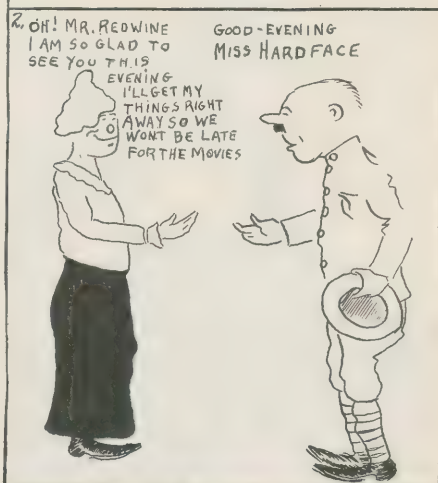 2. OH! MR. REDWINE
I AM SO GLAD TO
SEE YOU THIS
EVENING
I'LL GET MY
THINGS RIGHT
AWAY SO WE
WONT BE LATE
FOR THE MOVIES
GOOD-EVENING
MISS HARDFACE